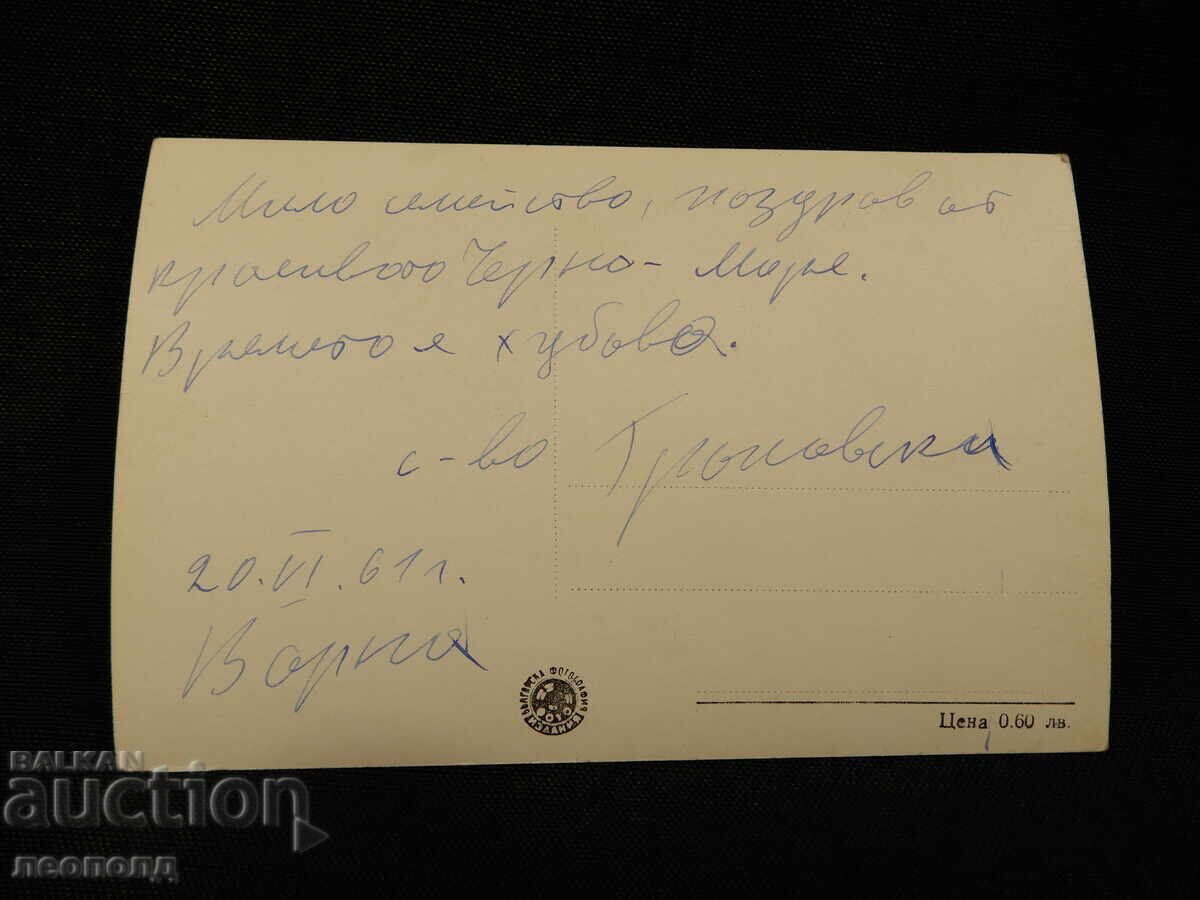 Мило семейство, поздрав от
красивото Черно-Море.
Времето е хубаво.
с-во
20.VI.61 г.
Варна
БЪЛГАРСКА ФОТОГРАФИЯ
ИЗДАНИЯ
Цена 0.60 лв.
BALKAN
auction
леополд